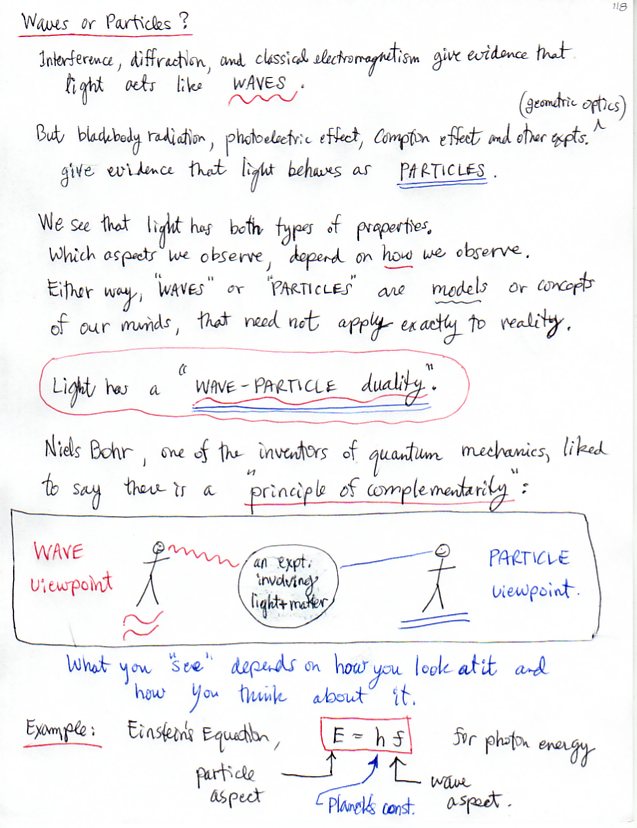 118
Waves or Particles?
Interference, diffraction, and classical electromagnetism give evidence that
light acts like WAVES.
(geometric optics)
But blackbody radiation, photoelectric effect, Compton effect and other expts. ^
give evidence that light behaves as PARTICLES.
We see that light has both types of properties.
Which aspects we observe, depend on how we observe.
Either way, "WAVES" or "PARTICLES" are models or concepts
of our minds, that need not apply exactly to reality.
Light has a "WAVE-PARTICLE duality".
Niels Bohr, one of the inventors of quantum mechanics, liked
to say there is a "principle of complementarity":
WAVE
viewpoint
an expt.
involving
light+matter
PARTICLE
viewpoint.
What you "see" depends on how you look at it and
how you think about it.
Example: Einstein's Equation, E = h f for photon energy
particle
aspect
Planck's const.
wave
aspect.